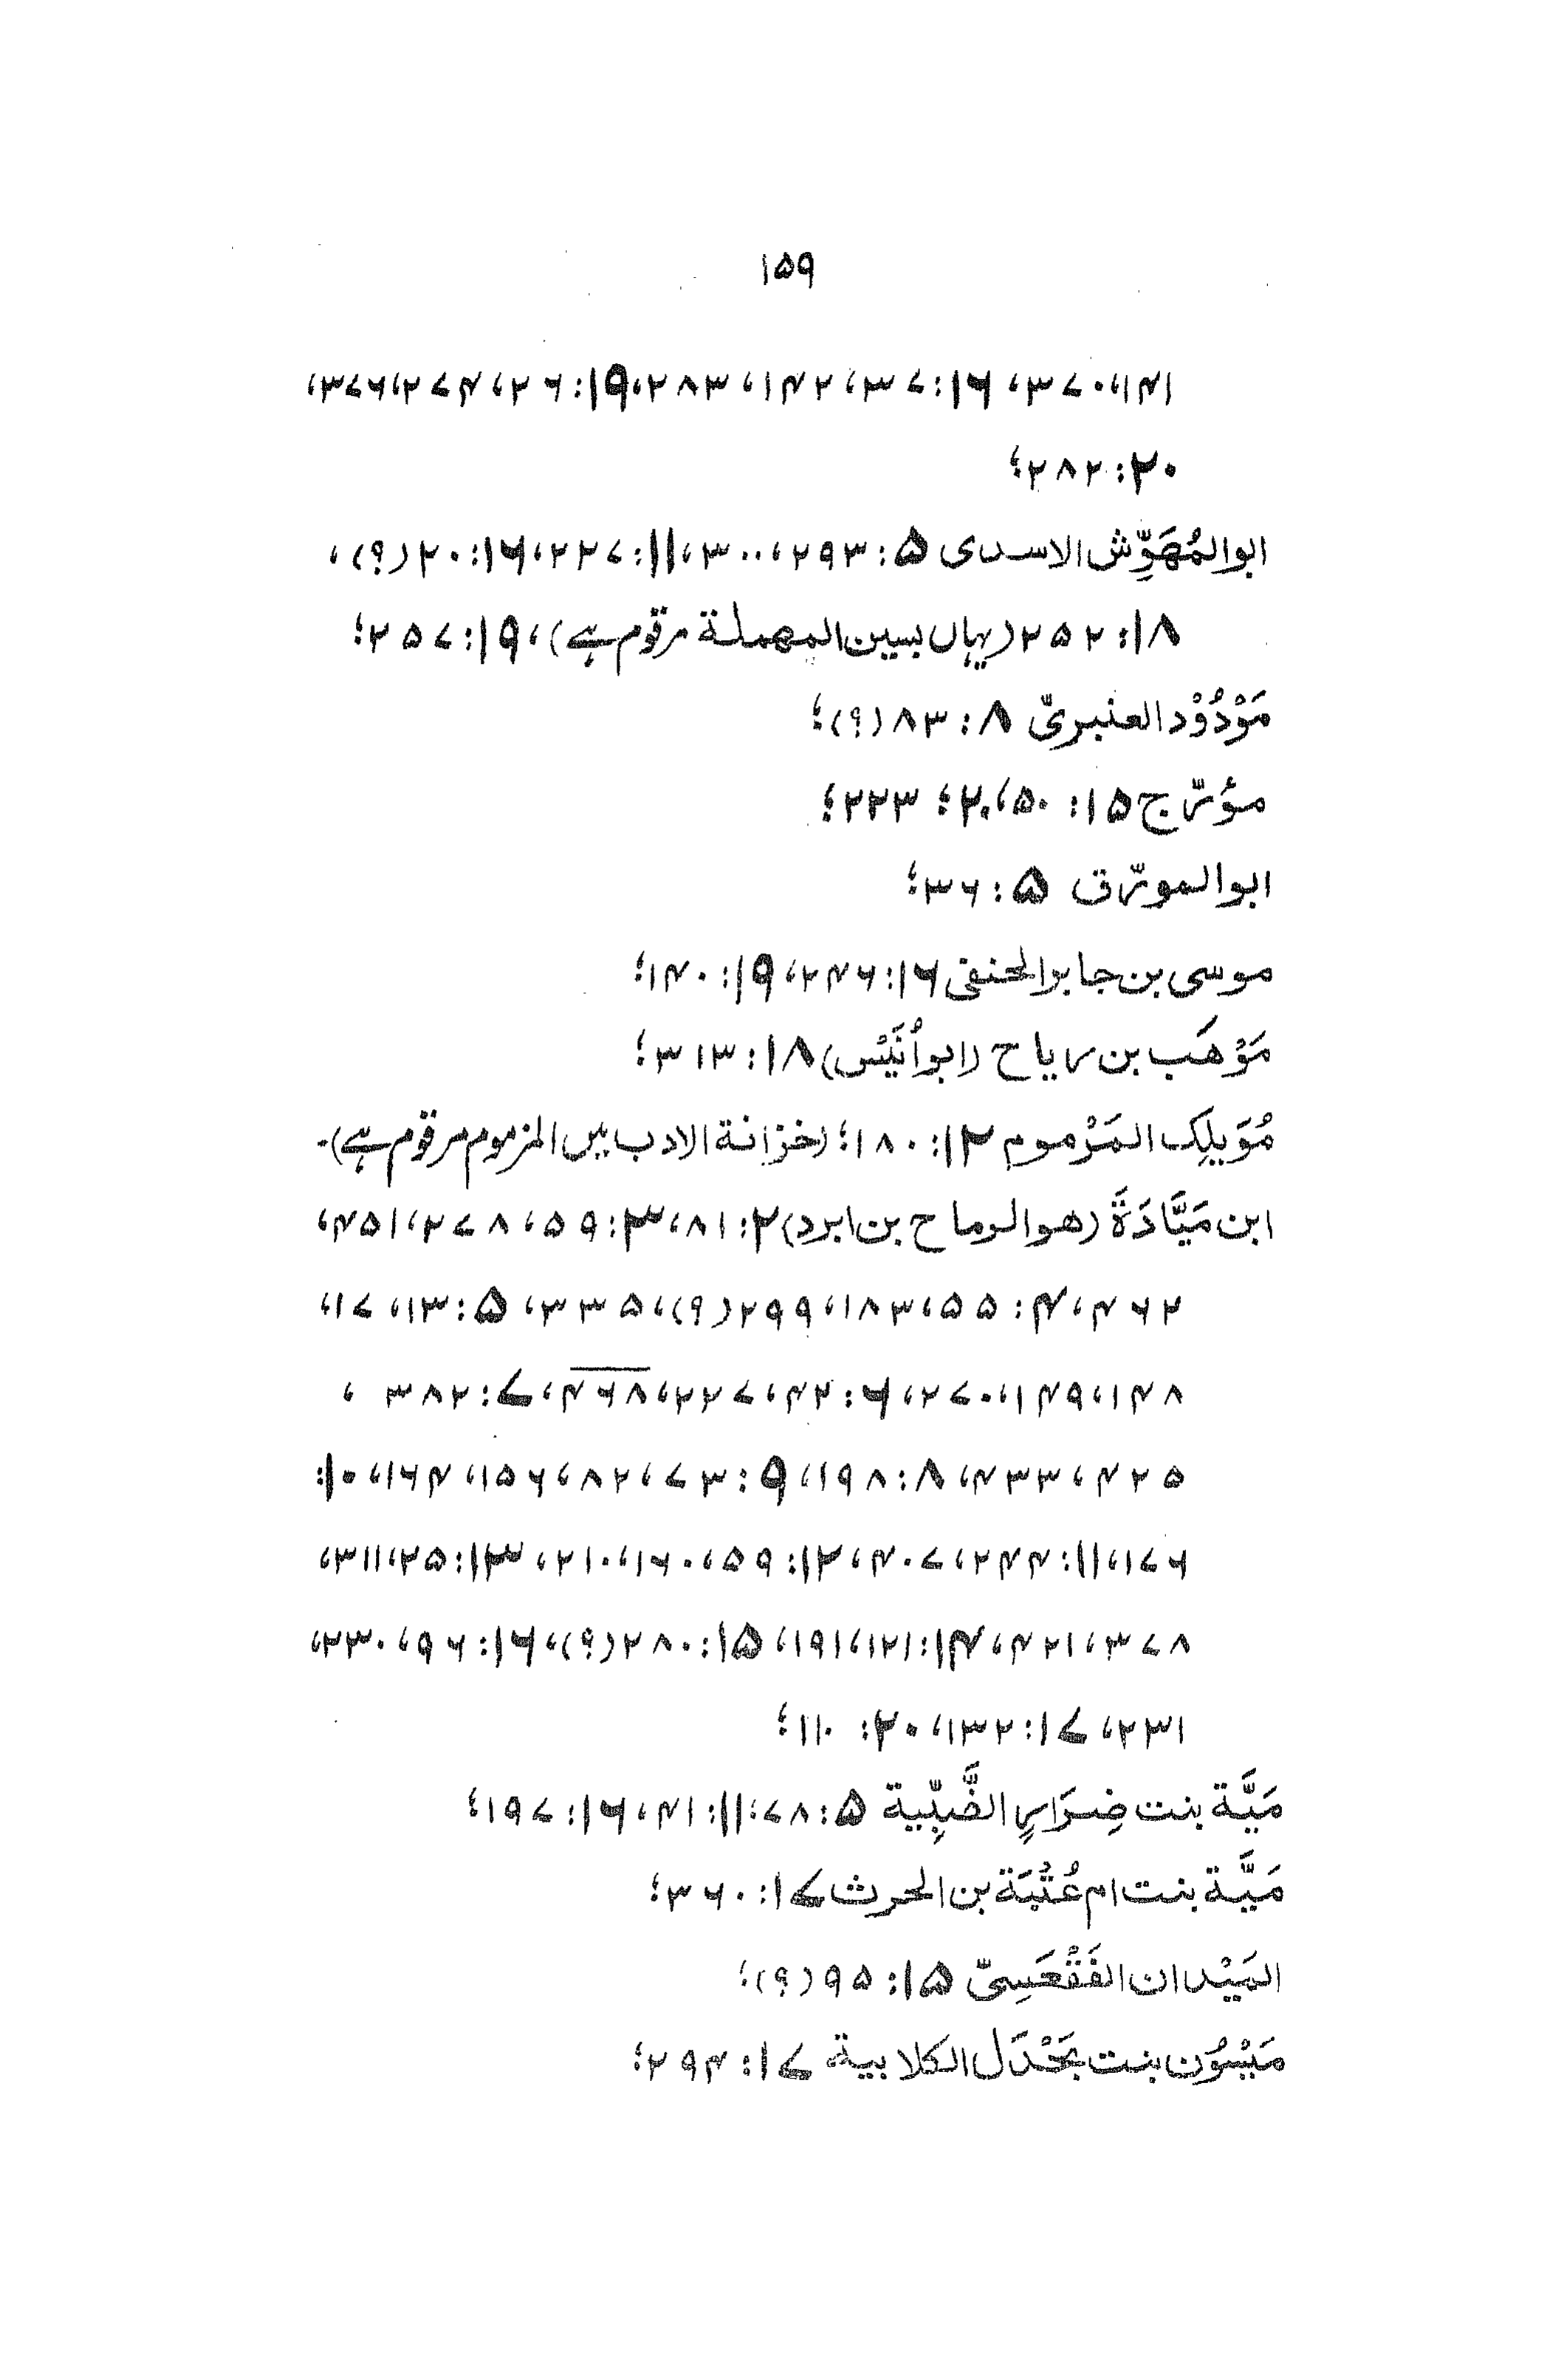 ۱۵۹
۱۴۱، ۳۷۰، ۱۶: ۳۷، ۱۴۲، ۲۸۳، ۱۹: ۲۶، ۲۷۴، ۳۷۶،
۲۰: ۲۸۲؛
ابوالمُهَوِّش الاسدی ۵: ۲۹۳، ۳۰۰، ۱۱: ۲۲۷، ۱۶: ۲۰ (؟)،
۱۸: ۲۵۲ (یہاں بسین المهملة مرقوم ہے)، ۱۹: ۲۵۷؛
مَوْدُوْد العنبریّ ۸: ۸۳ (؟)؛
مؤرّج ۱۵: ۵۰، ۲۰؛ ۲۲۳؛
ابوالمورّق ۵: ۳۶؛
موسی بن جابر الحنفی ۱۶: ۲۴۶، ۱۹: ۱۴۰؛
مَوْهَب بن ریاح (ابو اُنَیْس) ۱۸: ۳۱۳؛
مُوَیلِک المَزْموم ۱۲: ۱۸۰؛ (خزانة الادب میں المزموم مرقوم ہے)۔
ابن مَیَّادَةَ (هو الرماح بن ابرد) ۲: ۸۱، ۳: ۵۹، ۲۷۸، ۴۵۱،
۴۶۲، ۴: ۵۵، ۱۸۳، ۲۹۹ (؟)، ۳۳۵، ۵: ۱۳، ۱۷،
۱۴۸، ۱۴۹، ۲۷۰، ۶: ۴۲، ۲۲۷، ۴۶۸، ۷: ۳۸۲،
۴۲۵، ۴۳۳، ۸: ۱۹۸، ۹: ۷۳، ۸۲، ۱۵۶، ۱۶۴، ۱۰:
۱۷۶، ۱۱: ۲۴۴، ۴۰۷، ۱۲: ۵۹، ۱۶۰، ۲۱۰، ۱۳: ۲۵، ۳۱۱،
۳۷۸، ۴۲۱، ۱۴: ۱۲۱، ۱۹۱، ۱۵: ۲۸۰ (؟)، ۱۶: ۹۶، ۲۳۰،
۲۳۱، ۱۷: ۱۳۲، ۲۰: ۱۱۰؛
مَیَّة بنت ضِرَارٍ الضَّبِّیة ۵: ۷۸، ۱۱: ۴۱، ۱۶: ۱۹۷؛
مَیَّة بنت ام عُتْبَة بن الحرث ۱۷: ۳۶۰؛
المَیْدان الفَقْعَسِیّ ۱۵: ۹۵ (؟)؛
مَیْسُوْن بنت بَحْدَل الکلابیة ۱۷: ۲۹۴؛